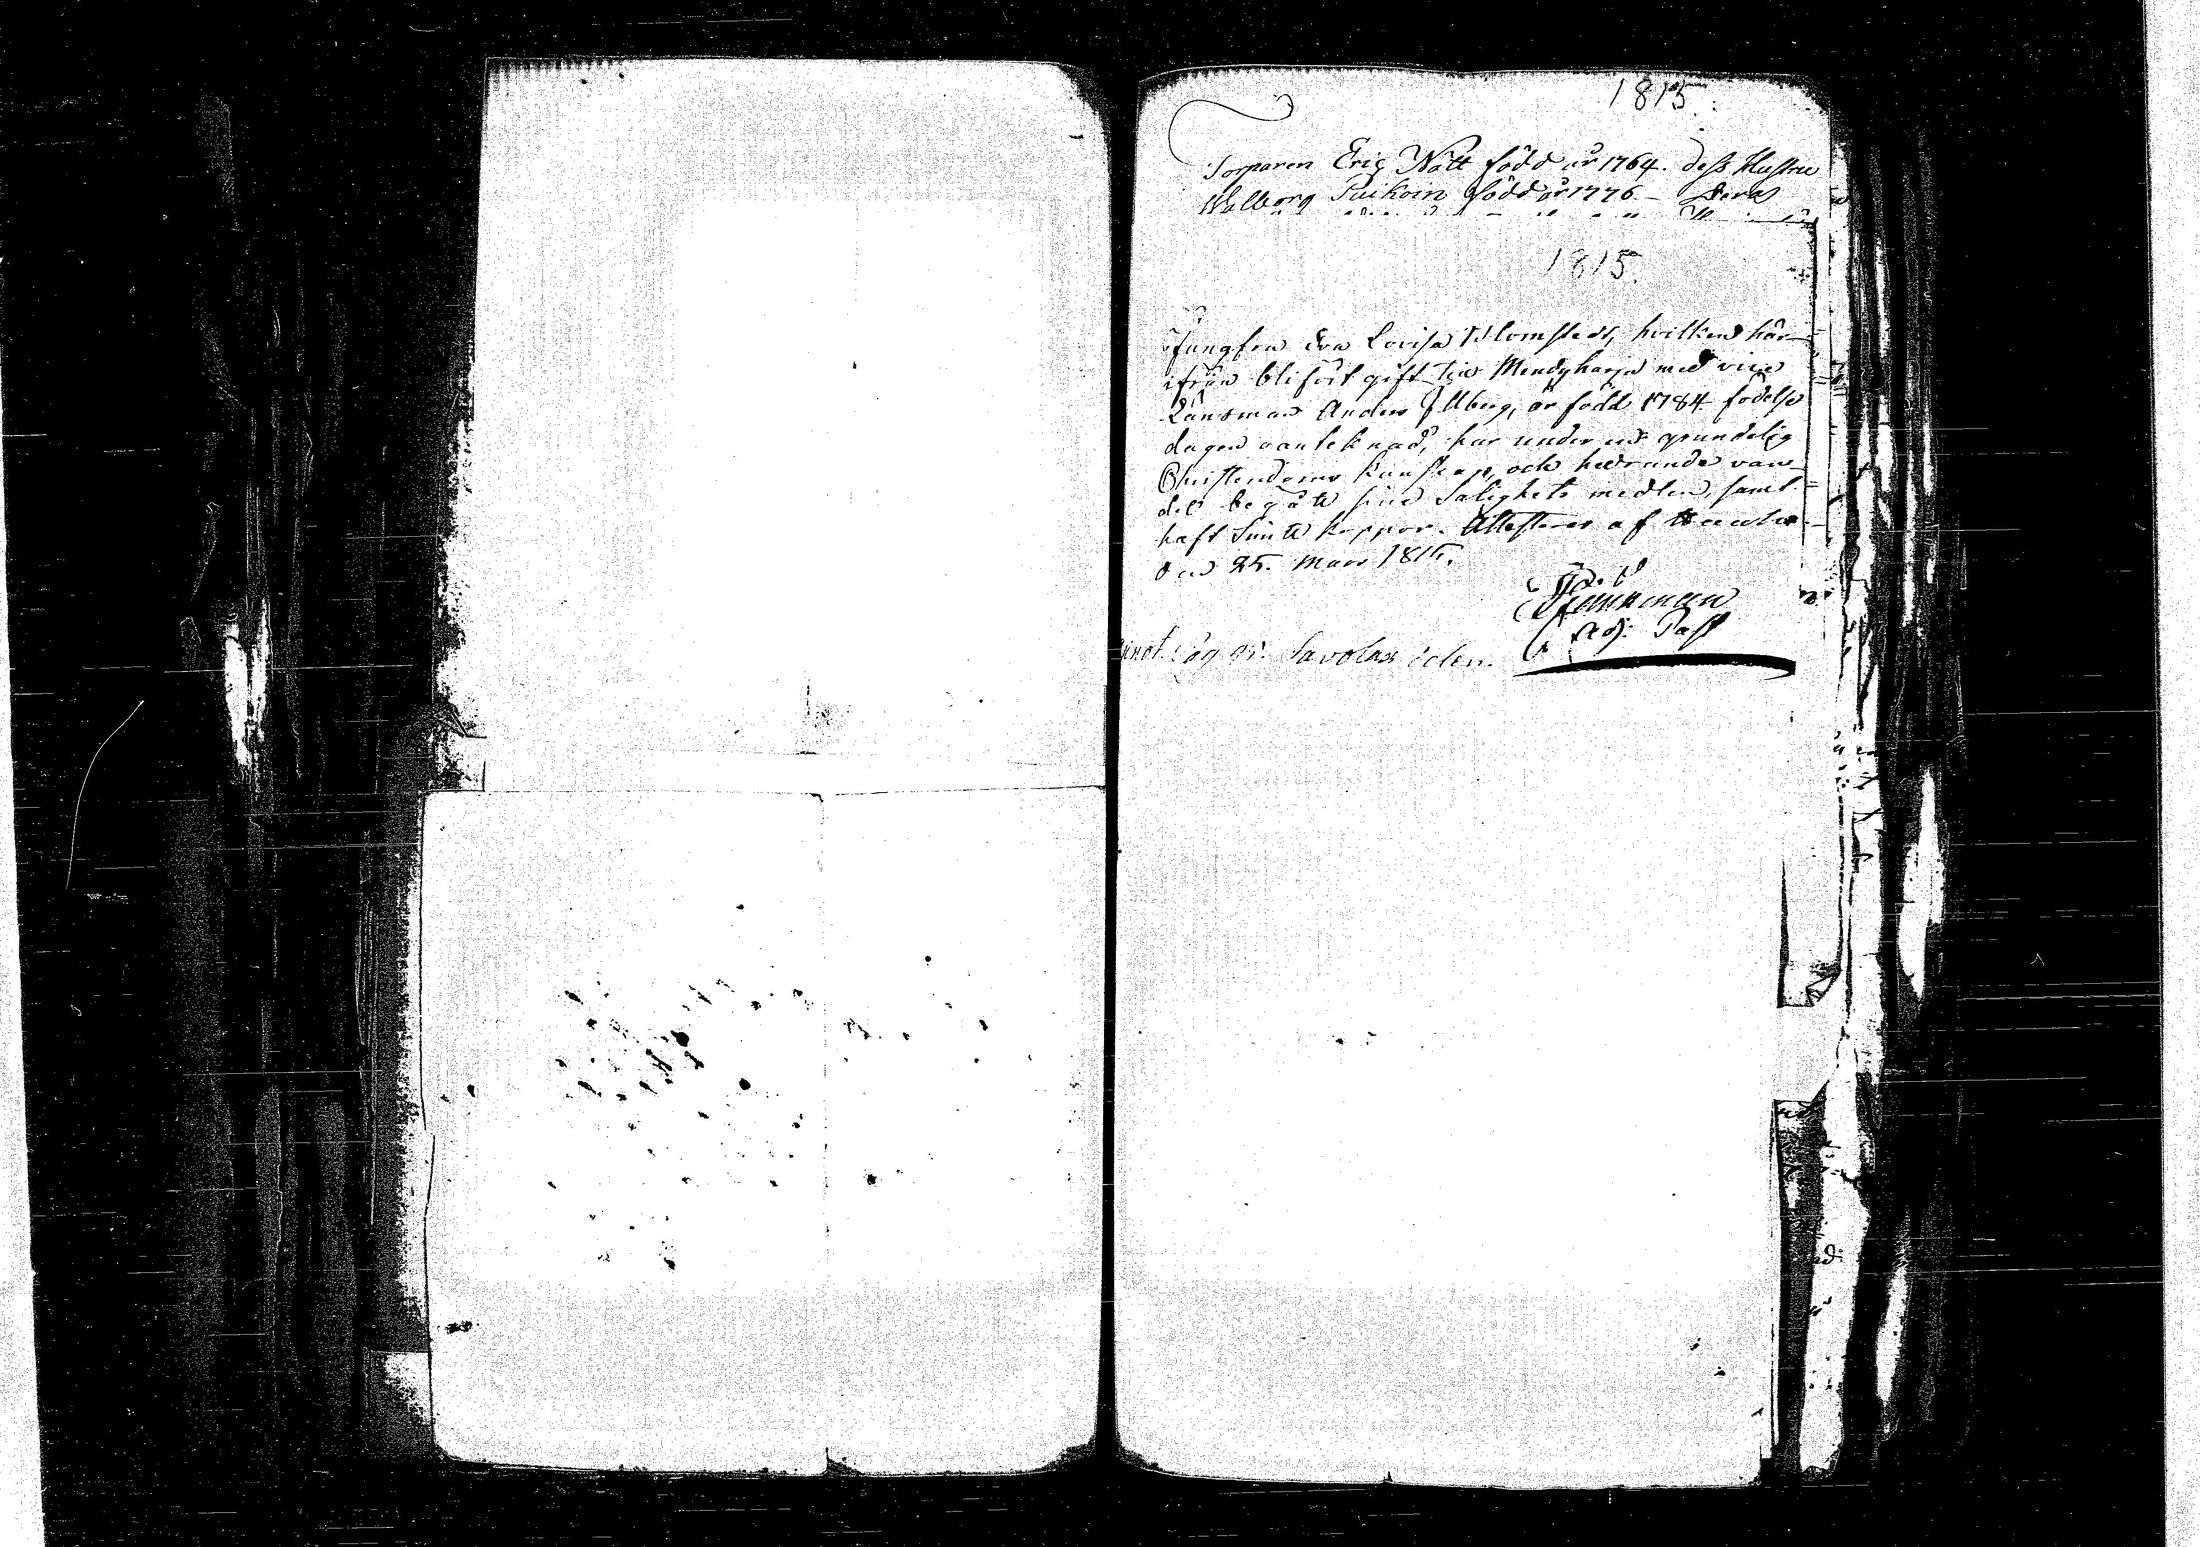 1815.
Torparen Eric Nätt född år 1764. dess Hustru
Walborg Puikoin född år 1776 – Deras
1815.
Jungfru Eva Lovisa Blomstedt, hvilken här-
ifrån blifvit gift till Mendyharju med vice
Länsman Anders Illberg, är född 1784 födelse
dagen oanteknad, har under en grundelig
Christendoms kunskap, och hedrande van-
del begått sine Salighets medlen, samt
haft Sina koppor. Attesteras af
den 25. Mars 1815.
Adj: Past
Savolax delen.